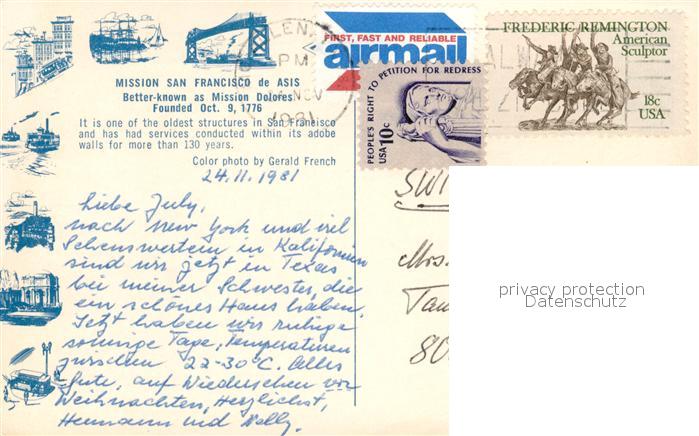 MISSION SAN FRANCISCO de ASIS
Better-known as Mission Dolores
Founded Oct. 9, 1776
It is one of the oldest structures in San Francisco
and has had services conducted within its adobe
walls for more than 130 years.
Color photo by Gerald French
24.11.1981
Liebe July,
nach New York und viel
Sehenswertem in Kalifornien
sind wir jetzt in Texas
bei meiner Schwester, die
ein schönes Haus haben.
Jetzt haben wir ruhige
sonnige Tage, Temperaturen
zwischen 22-30°C. Alles
Gute, auf Wiedersehen vor
Weihnachten, Herzlichst,
Hermann und Nelly.
FIRST, FAST AND RELIABLE
airmail
PEOPLE'S RIGHT TO PETITION FOR REDRESS
USA 10c
FREDERIC REMINGTON
American
Sculptor
18c
USA
PM
NOV
1981
Mrs.
privacy protection
Datenschutz